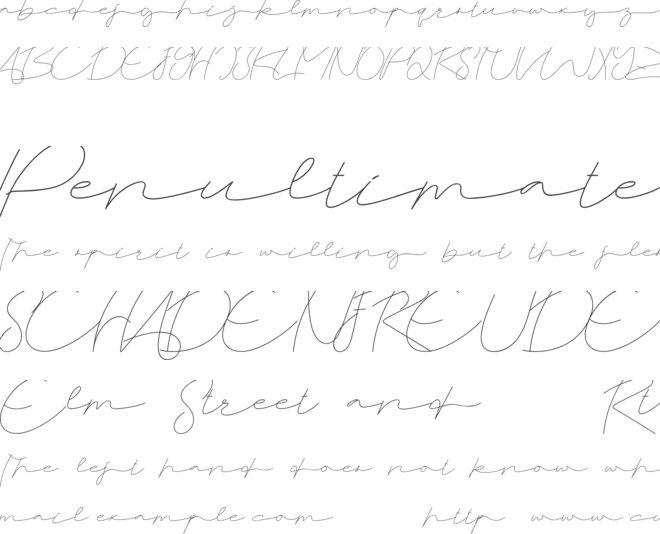 abcdefghijklmnopqrstuvwxyz
ABCDEFGHIJKLMNOPQRSTUVWXYZ
Penultimate
The spirit is willing but the fles
SCHADENFREUDE
Elm Street and Rt
The left hand does not know wh
mail example com http www cu